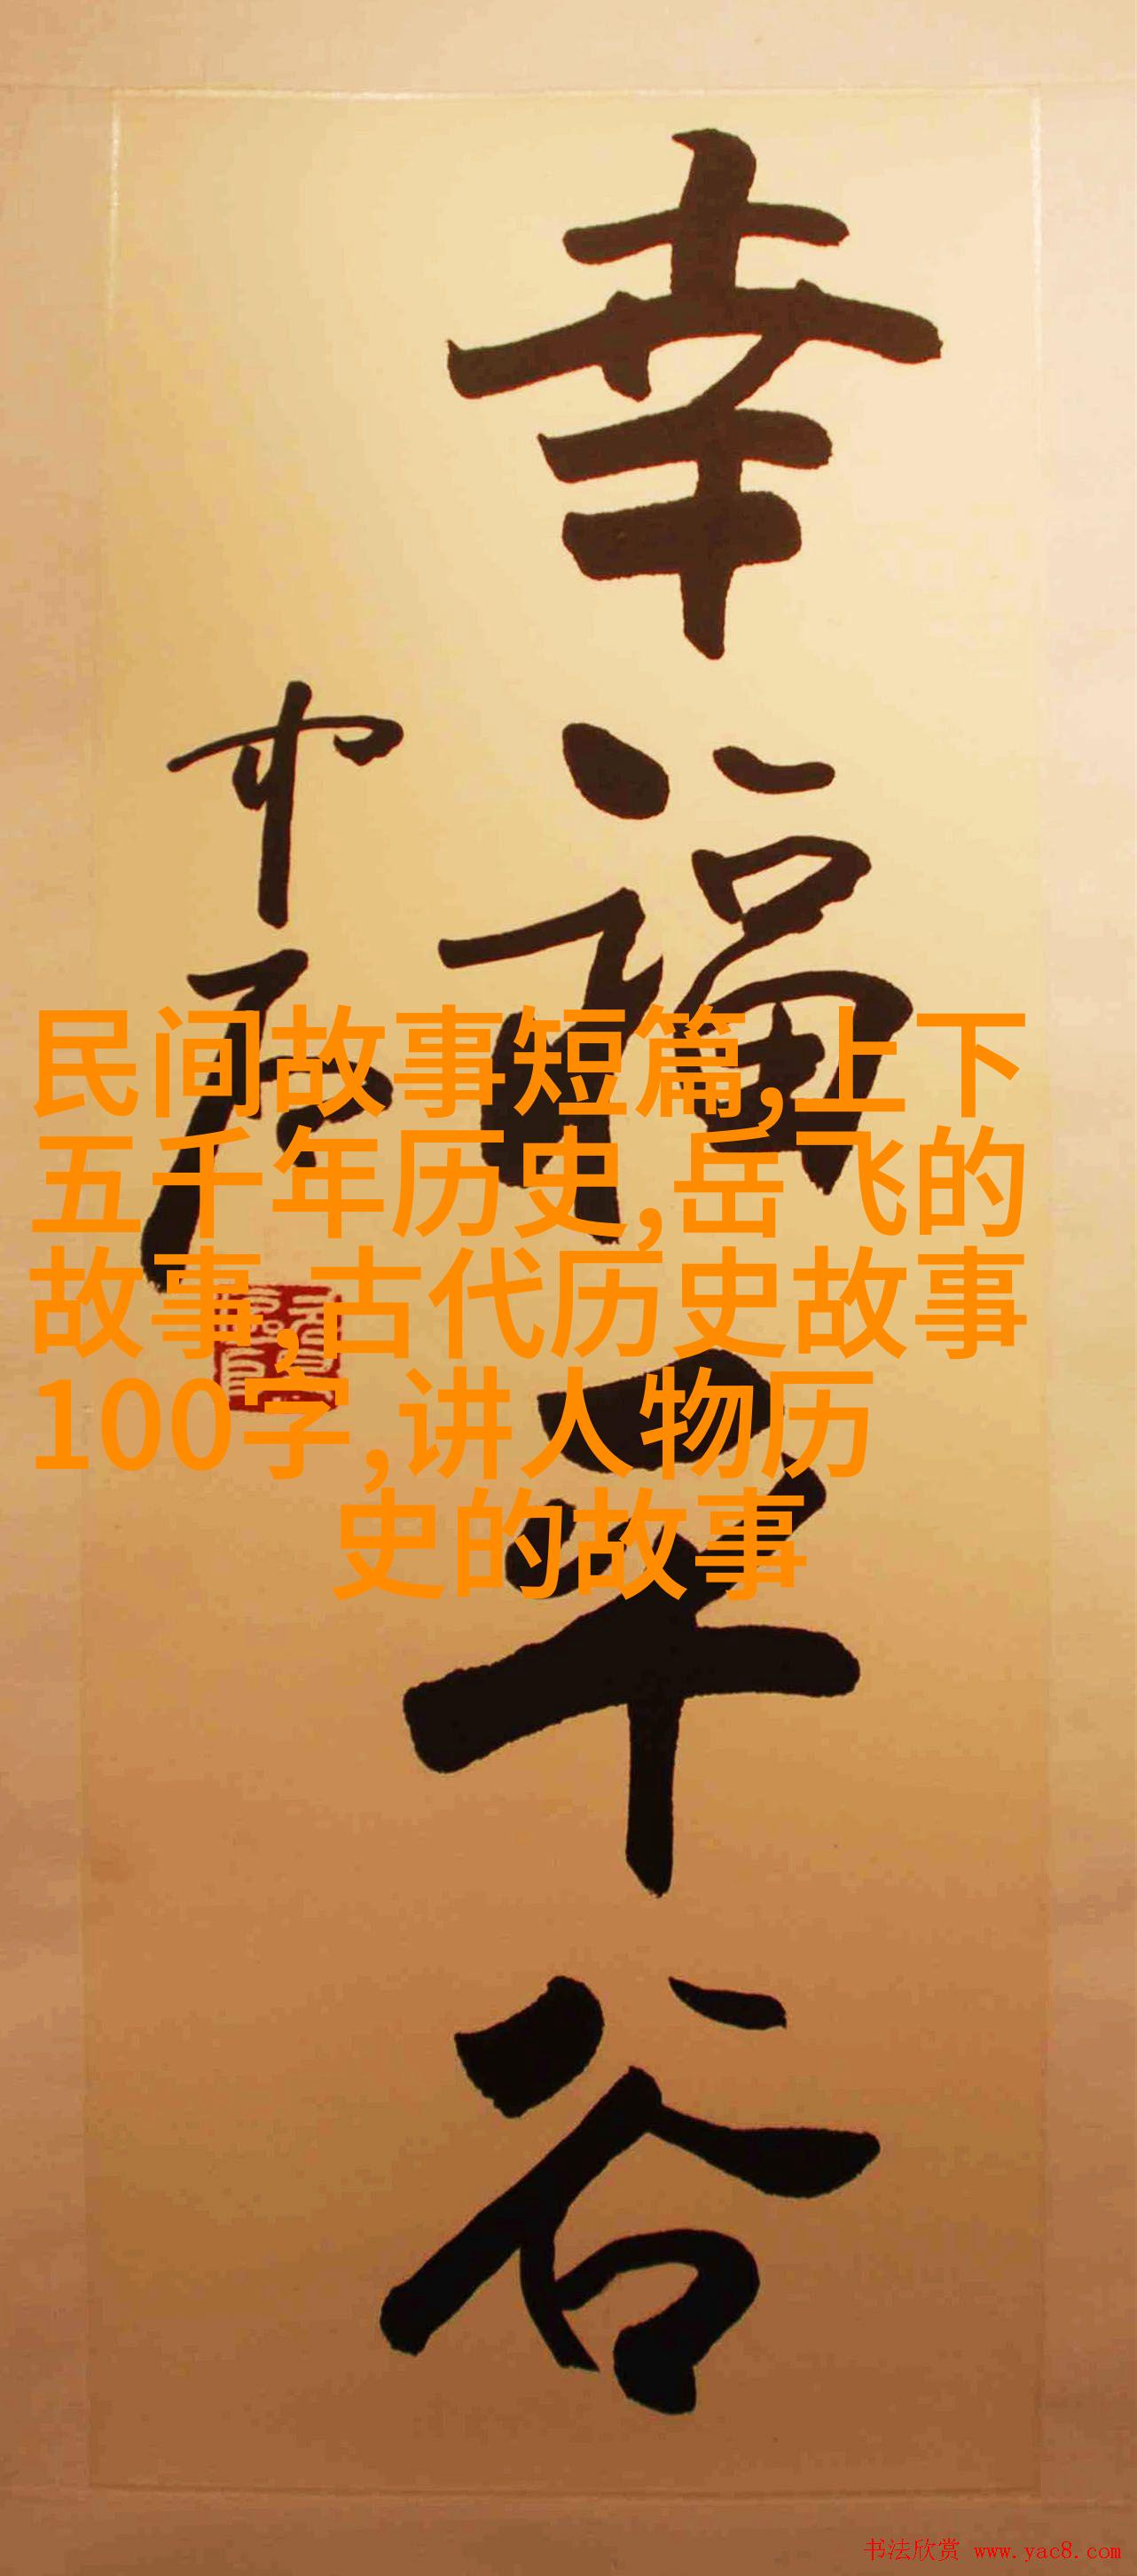 幸福平谷
中石
民间故事短篇,上下
五千年历史,岳飞的
故事,古代历史故事
100字,讲人物历
史的故事
书法欣赏 www.yac8.com